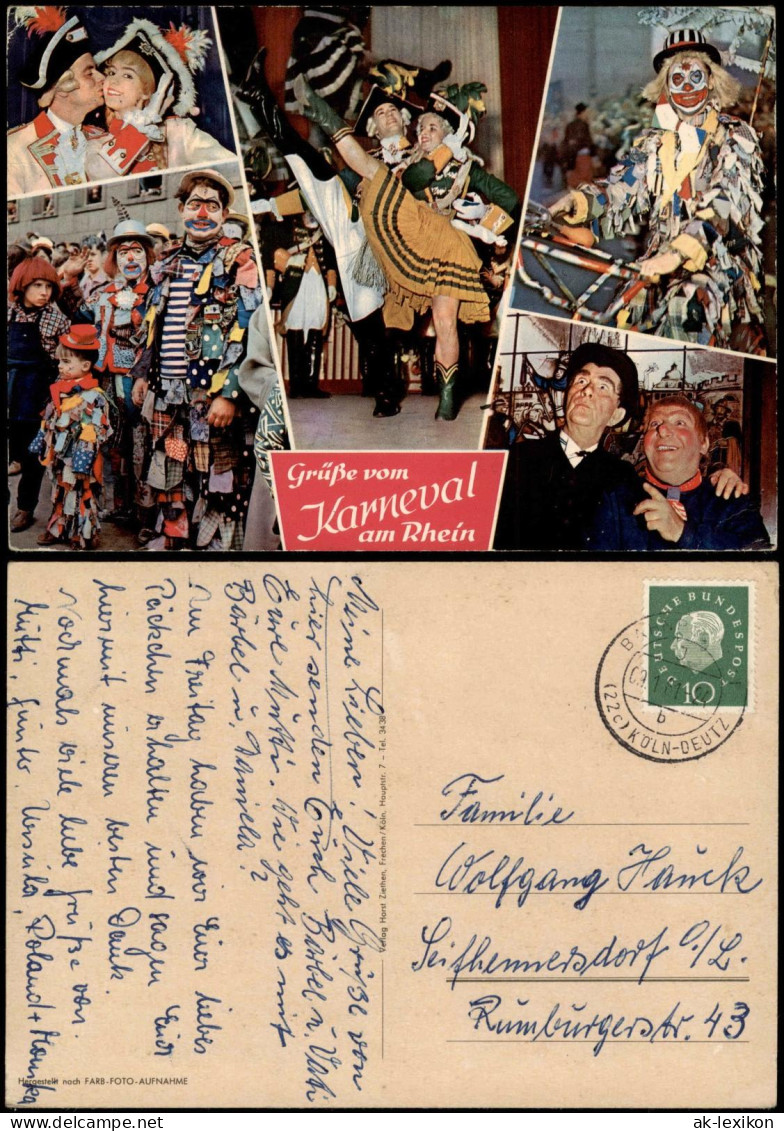 © ak-ansichtskarten.de
Grüße vom
Karneval
am Rhein
Meine Lieben! Viele Grüße von
hier senden Euch Bärbel u. Vati
Eure Mutti. Wie geht es mit
Bärbel u. Daniela?
Am Freitag haben wir Euer liebes
Päckchen erhalten und sagen Euch
hiermit unseren besten Dank.
Nochmals viele liebe Grüße von
Mutti, Günter, Ursula, Roland +
Verlag Horst Ziethen, Frechen/Köln, Hauptstr. 7 – Tel. 3438
Hergestellt nach FARB-FOTO-AUFNAHME
DEUTSCHE BUNDESPOST
10
b
(22c) KÖLN-DEUTZ
Familie
Wolfgang Hauck
Seifhennersdorf O/L.
Rumburgerstr. 43
ak-lexikon